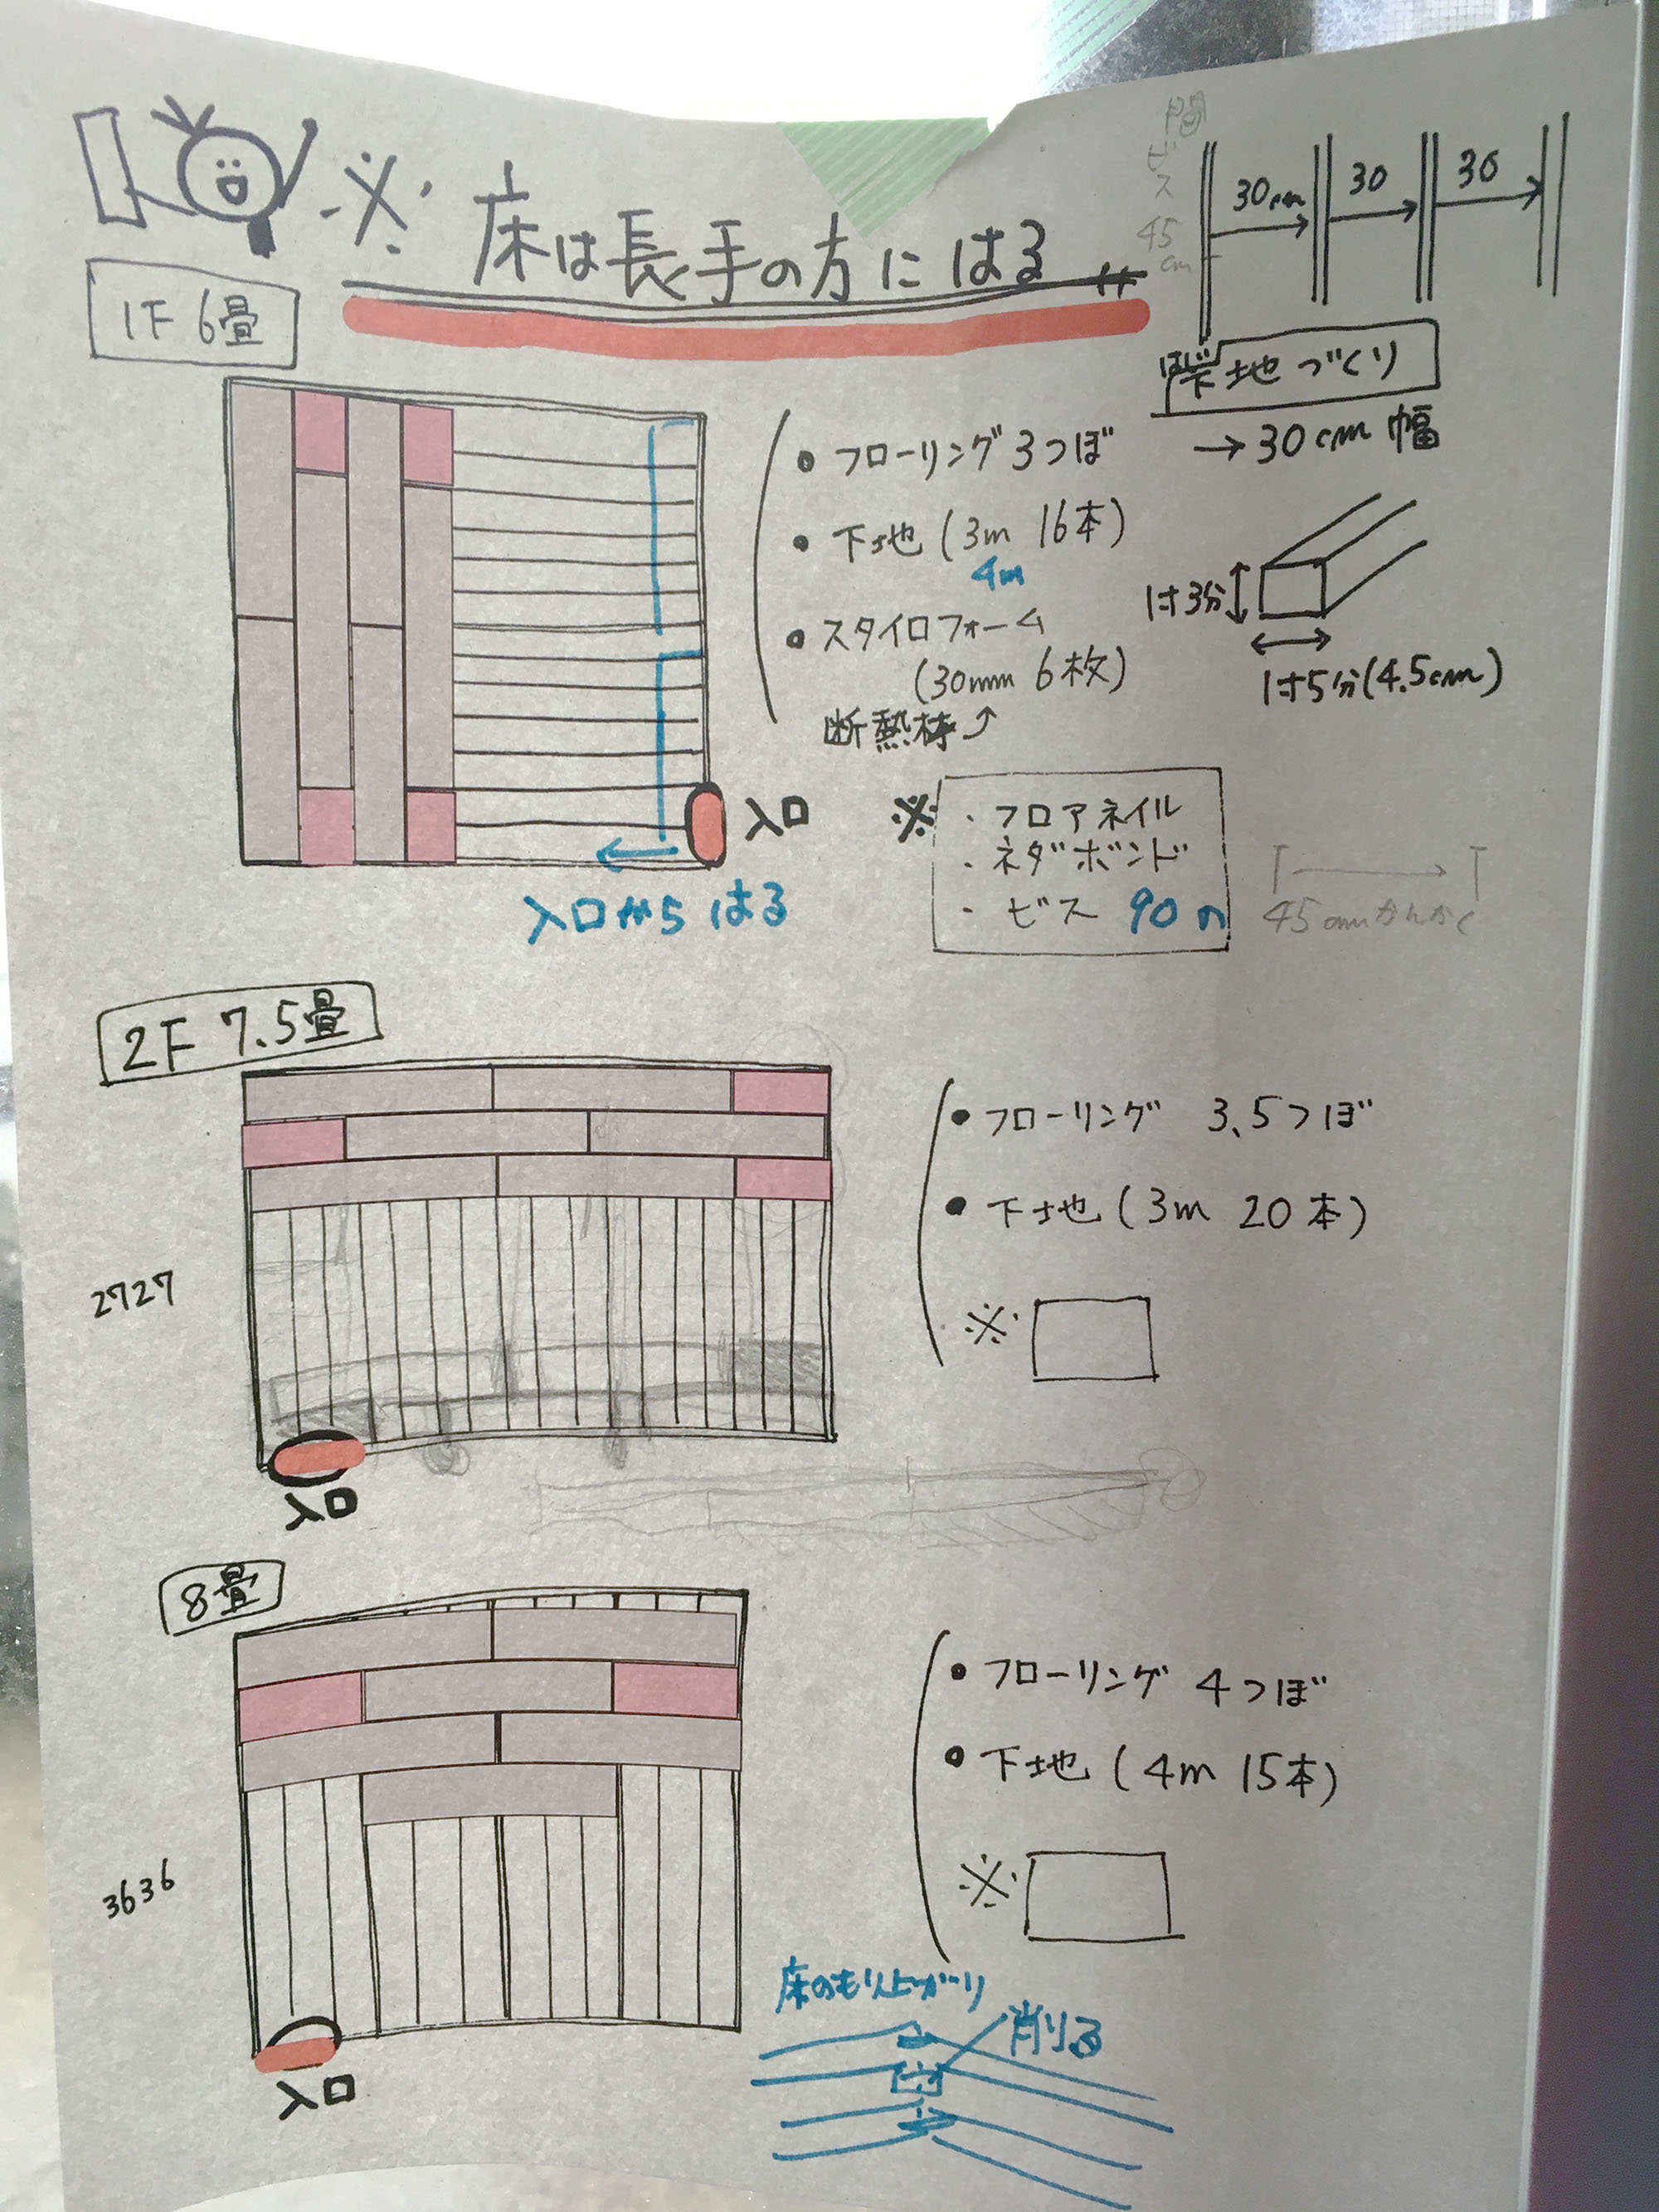 ※ 床は長手の方にはる
間
ビス
45
cm
30cm
30
30
1F 6畳
下地づくり
→30cm幅
・フローリング3つぼ
・下地(3m 16本)
4m
・スタイロフォーム
(30mm 6枚)
断熱棒
1寸3分
1寸5分(4.5cm)
入口
入口からはる
※
・フロアネイル
・ネダボンド
・ビス 90
45cmかんかく
2F 7.5畳
2727
入口
・フローリング 3.5つぼ
・下地(3m 20本)
※
8畳
3636
入口
・フローリング 4つぼ
・下地(4m 15本)
※
床のもり上がり
削る